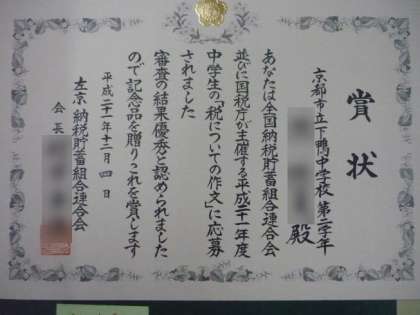 賞状
京都市立下鴨中学校 第二学年
殿
あなたは全国納税貯蓄組合連合会
並びに国税庁が主催する平成二十一年度
中学生の「税についての作文」に応募
されました
審査の結果優秀と認められました
ので記念品を贈りこれを賞します
平成二十一年十二月 四 日
左京納税貯蓄組合連合会
会長